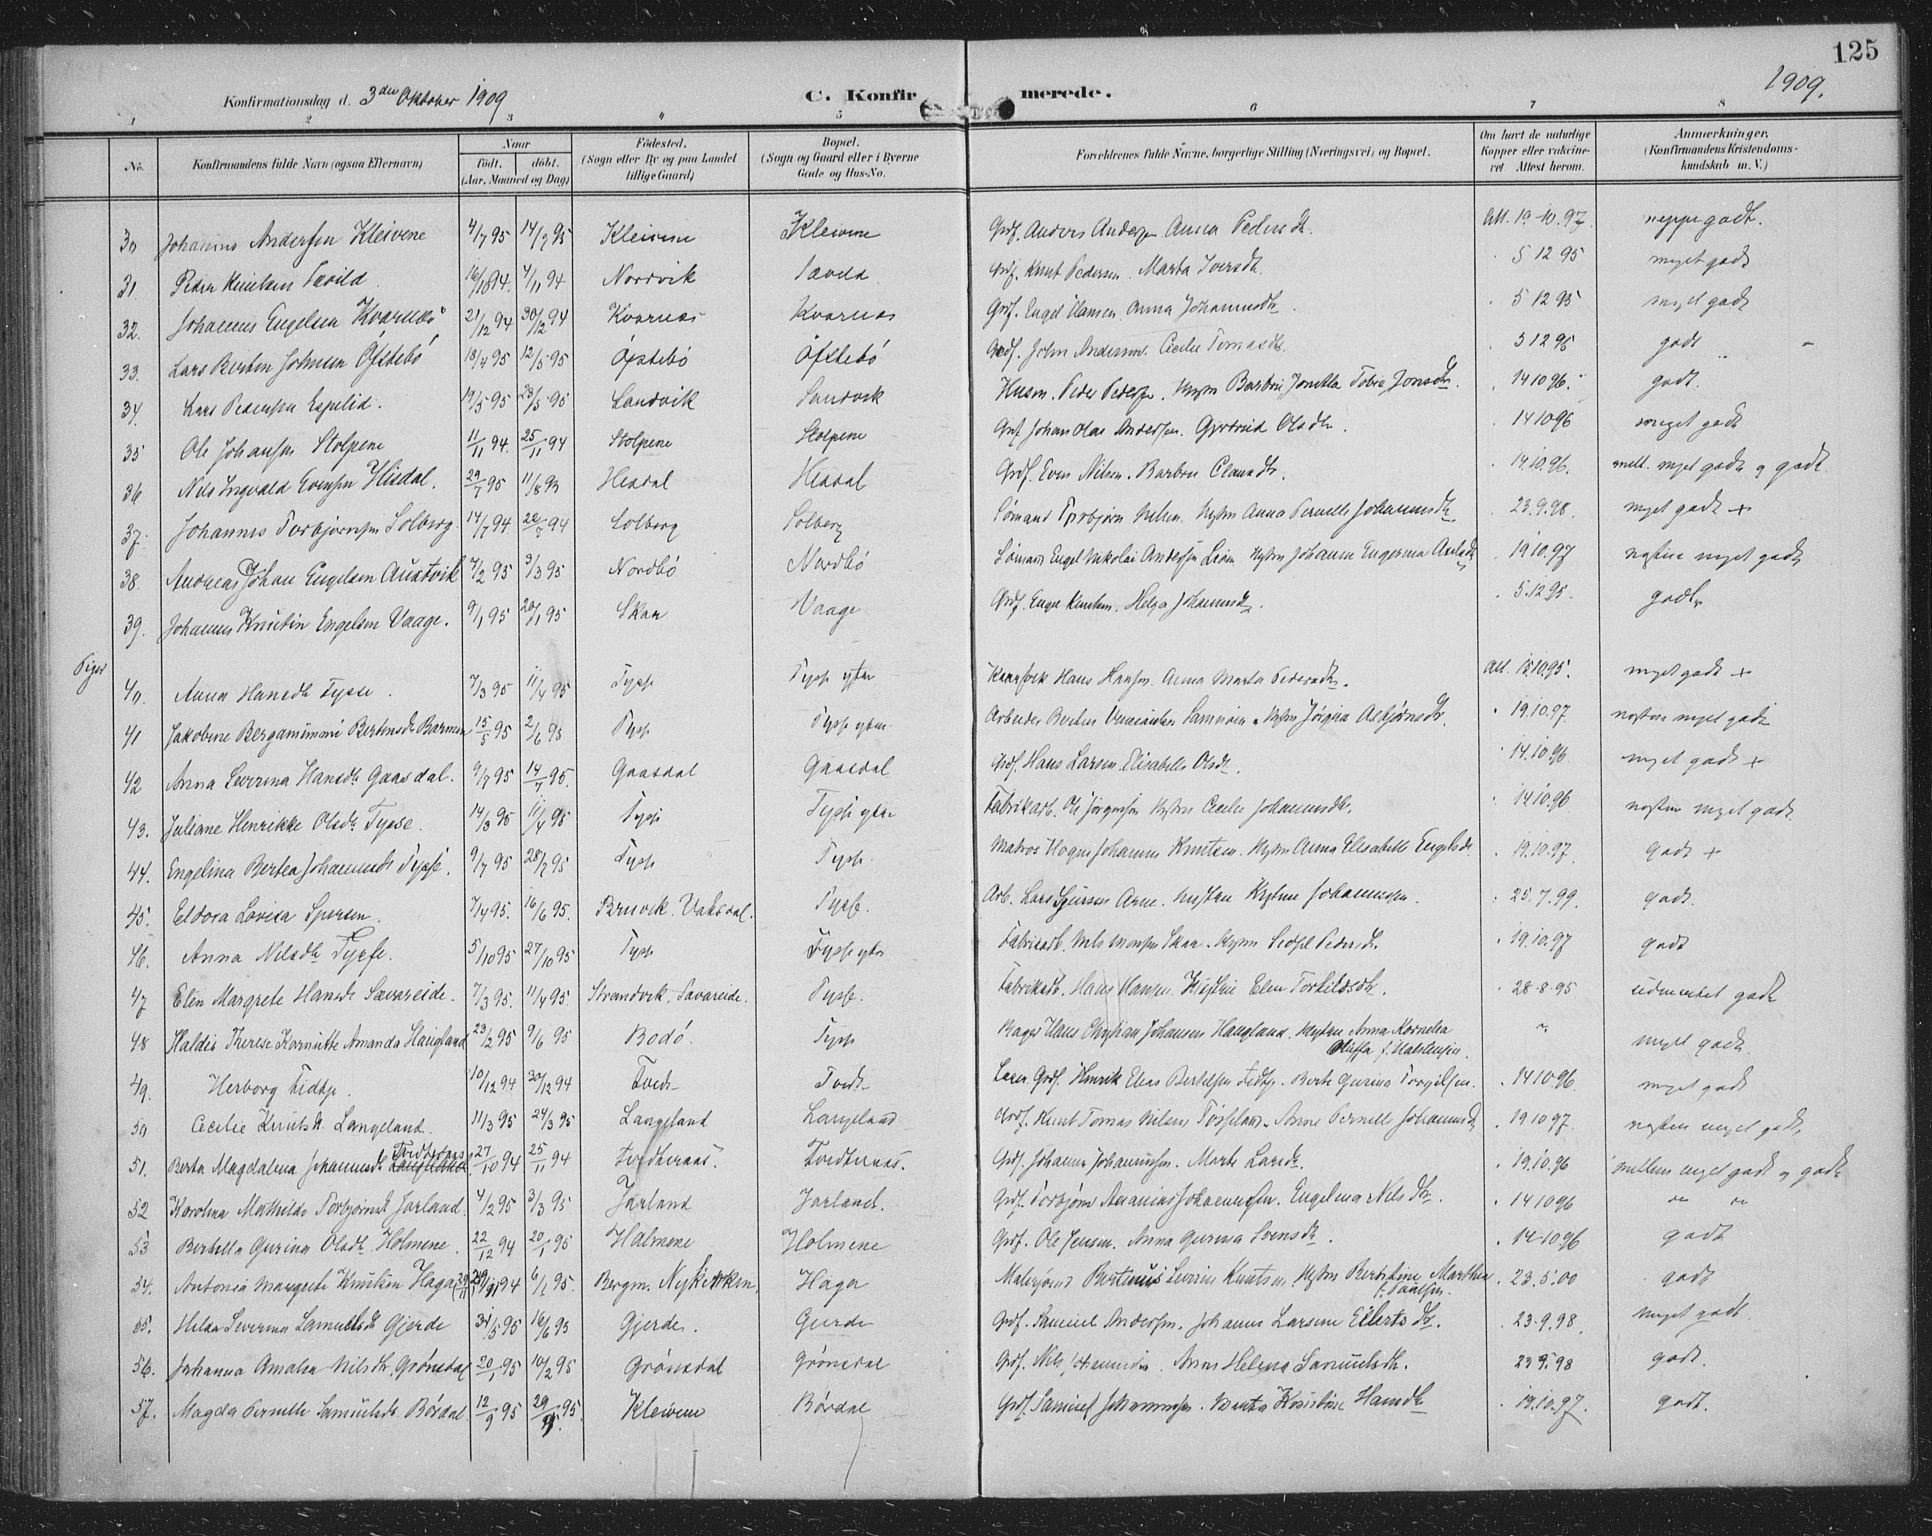 125
1909.
Konfirmationsdag d. 3die Oktober 1909
C. Konfirmerede.
1 2 3 4 5 6 7 8
No. Konfirmandens fulde Navn (ogsaa Efternavn) Naar født. døbt. (Aar, Maaned og Dag) Fødested. (Sogn eller By og paa Landet tillige Gaard) Bopæl. (Sogn og Gaard eller i Byerne Gade og Hus-No. Forældrenes fulde Navne, borgerlige Stilling (Næringsvei) og Bopæl. Om havt de naturlige Kopper eller vakcineret Attest herom. Anmærkninger, (Konfirmandens Kristendomskundskab m. V.)
30 Johannes Andersen Kleivene 4/7 95 14/7 95 Kleivene Kleivene Grdf. Anders Andersen Anna Pedersdtr. Att. 19-10.97. neppe godt.
31. Peder Knutsen 16/10 94. 4/11 94 Nordvik Grdf. Knut Pedersen. Marta Iversdtr. 5 12 95 meget godt
32. Johannes Engelsen Kvarnæs 21/12 94 30/12 94 Kvarnæs Kvarnæs Grdf. Engel Hansen Anna Johannesdtr. 5 12 95 meget godt
33. Lars Bertin Johnsen Øfstebø 18/4 95 12/5 95 Øfstebø Øfstebø Grdf. John Andersen. Cecilie Tomasdtr. 5 12 95 godt
34. Lars Pedersen Espelid. 19/5 95 23/5 95 Sandvik Sandvik Husm. Peder Pedersen. Hustru Barbru Jonetta Tobia Jonsdtr. 14 10 96. godt.
35 Ole Johansen Stolpene 11/11 94. 25/11 94 Stolpene Stolpene Grdf. Johan Olai Andersen. Gjertrud Olsdtr. 14 10 96 meget godt
36 Nils Ingvald Evensen Hisdal. 29/7 95 11/8 95 Hisdal Hisdal Grdf. Even Nilsen. Barbru Clausdtr. 14.10.96. mell. meget godt og godt.
37. Johannes Torbjørnsen Solberg 14/7 94. 22/7 94 Solberg Solberg Sømand Torbjørn Nilsen. Hustru Anna Pernelle Johannesdtr. 23.9.98. meget godt +
38. Andreas Johan Engelsen Austvik 7/2 95 3/3 95 Nordbø Nordbø Sømand Engel Nikolai Andersen Hustru Johanna Engerina 19 10.97 næsten meget godt
39. Johannes Knutin Engelsen Vaage. 9/1 95 20/1 95 Skaar Vaage. Grdf. Engel Knutsen. Helga Johannesdtr. 5.12 95. godt
Piger
40. Anna Hansdtr Tysse. 7/3 95 11/4 95 Tysse Tysse ytre Hans Hansen. Anna Marta Pedersdtr. Att. 15.10.95. meget godt +
41 Jakobine Bergamimmi Bertinsdtr Barmen 15/5 95 2/6 95 Tysse Tysse ytre Arbeider Hustru Jørgina Asbjørnsdtr. 19.10.97. næsten meget godt
42 Anna Severina Hansdtr Gaasdal. 9/7 95 14/7 95. Gaasdal Gaasdal Grdf. Hans Larsen. Elisabeth Olsdtr. 14.10.96 meget godt +
43. Juliane Henrikke Olsdtr Tysse. 14/3 95 11/4 95 Tysse Tysse ytre Fabrikarb. Ole Jørgensen Hustru Cecilie Johannesdtr. 14 10.96 næsten meget godt
44. Engelina Bertea Johannesdtr Tysse. 9/7 95 28/7 95 Tysse Tysse. Matros Johannes Knutsen. Hustru Anna Elisabeth Engelsdtr. 19.10.97. godt +
45. Eldora Lovisa Spersen. 7/4 95. 16/6 95. Bruvik. Vaksdal. Tysse. Arb. Lars Hustru Johannessen. 25.7.99. godt.
46. Anna Nilsdtr Tysse. 5/10 95 27/10 95 Tysse Tysse ytre Fabrikarb. Nils Monsen Skaar. Hustru Pedersdtr. 19.10.97 godt
47 Elen Margrete Hansdtr Sævareide. 7/3 95. 11/4 95 Strandvik. Sævareide. Tysse. Fabrikarb. Hans Hansen. Hustru Elen Torkildsdtr. 28-8-95 udmærket godt
48 Haldis Therese Kornutte Amanda Haugland 23/2 95 9/6 95 Bodø. Tysse Bager Hans Christian Johansen Haugland. Hustru Anna Kornelia Oluffa f. Halstensen. " meget godt.
49. Herborg Tidtsp. 10/12 94 30/12 94 Tvedt Tvedt Lærer Grdf. Henrik Elias Bertelsen Berte Gurina Torgilsen. 14 10 96. meget godt
50 Cecilie Knutsdtr. Langeland. 11/3 95 24/3 95 Langeland Langeland Grdf. Knut Tomas Nilsen Anne Pernelle Johannesdtr. 19 10 97. næsten meget godt
51. Berta Magdalena Johannesdtr Tvedternæs 27/10 94 25/11 94 Tvedternæs. Tvedternæs. Grdf. Johannes Johannessen. Marta Larsdtr. 19.10.96 mellem meget godt og godt
52 Karolina Mathilde Torbjørnsdtr Jarland. 4/2 95 3/3 95 Jarland Jarland. Grdf. Torbjørn Ananias Johannessen. Engelina Nilsdtr. 14 10 96 " "
53 Bertella Gurina Olsdtr Holmene. 22/12 94 20/1 95 Holmene Holmene Grdf. Ole Jensen. Anna Gurina Svensdtr. 14-10 96 godt
54. Antonia Margrete Knutsen Haga 94 6/1 95. Bergen. Nykirken, Haga Bertinius Severin Knutsen Hustru Bertine Marthea f. Paulsen. 23.5.00 godt
55. Helda Severina Samuelsdtr Gjerde 31/5 95 16/6 95 Gjerde. Gjerde Grdf. Samuel Andersen. Johanne Larsine Eilertsdtr. 23-9.98. meget godt
56. Johanna Amalia Nilsdtr. Grønsdal 20/1 95 10/2 95 Grønsdal Grønsdal Grdf. Nils Johannessen. Anne Helena Samuelsdtr. 23 9.98 godt.
57. Magda Pernelle Samuelsdtr. Børdal. 12/9 95 29/9 95. Kleivene Børdal Grdf. Samuel Johannessen. Marta Kristine Hansdtr 19.10.97. godt.